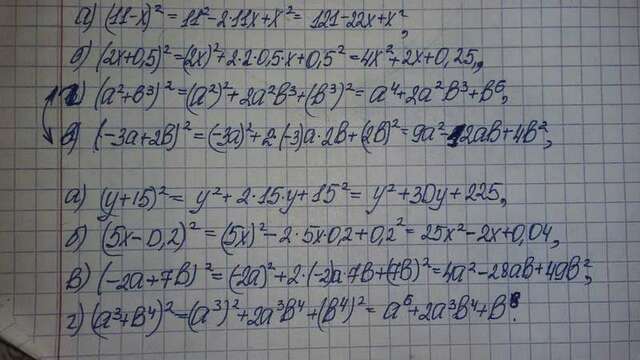 а) (11-x)² = 11² - 2·11x + x² = 121 - 22x + x²,
б) (2x+0,5)² = (2x)² + 2·2·0,5·x + 0,5² = 4x² + 2x + 0,25,
г) (a²+b³)² = (a²)² + 2a²b³ + (b³)² = a⁴ + 2a²b³ + b⁶,
в) (-3a+2b)² = (-3a)² + 2·(-3)a·2b + (2b)² = 9a² - 12ab + 4b²,
а) (y+15)² = y² + 2·15·y + 15² = y² + 30y + 225,
б) (5x-0,2)² = (5x)² - 2·5x·0,2 + 0,2² = 25x² - 2x + 0,04,
в) (-2a+7b)² = (-2a)² + 2·(-2)a·7b + (7b)² = 4a² - 28ab + 49b²,
г) (a³+b⁴)² = (a³)² + 2a³b⁴ + (b⁴)² = a⁶ + 2a³b⁴ + b⁸.